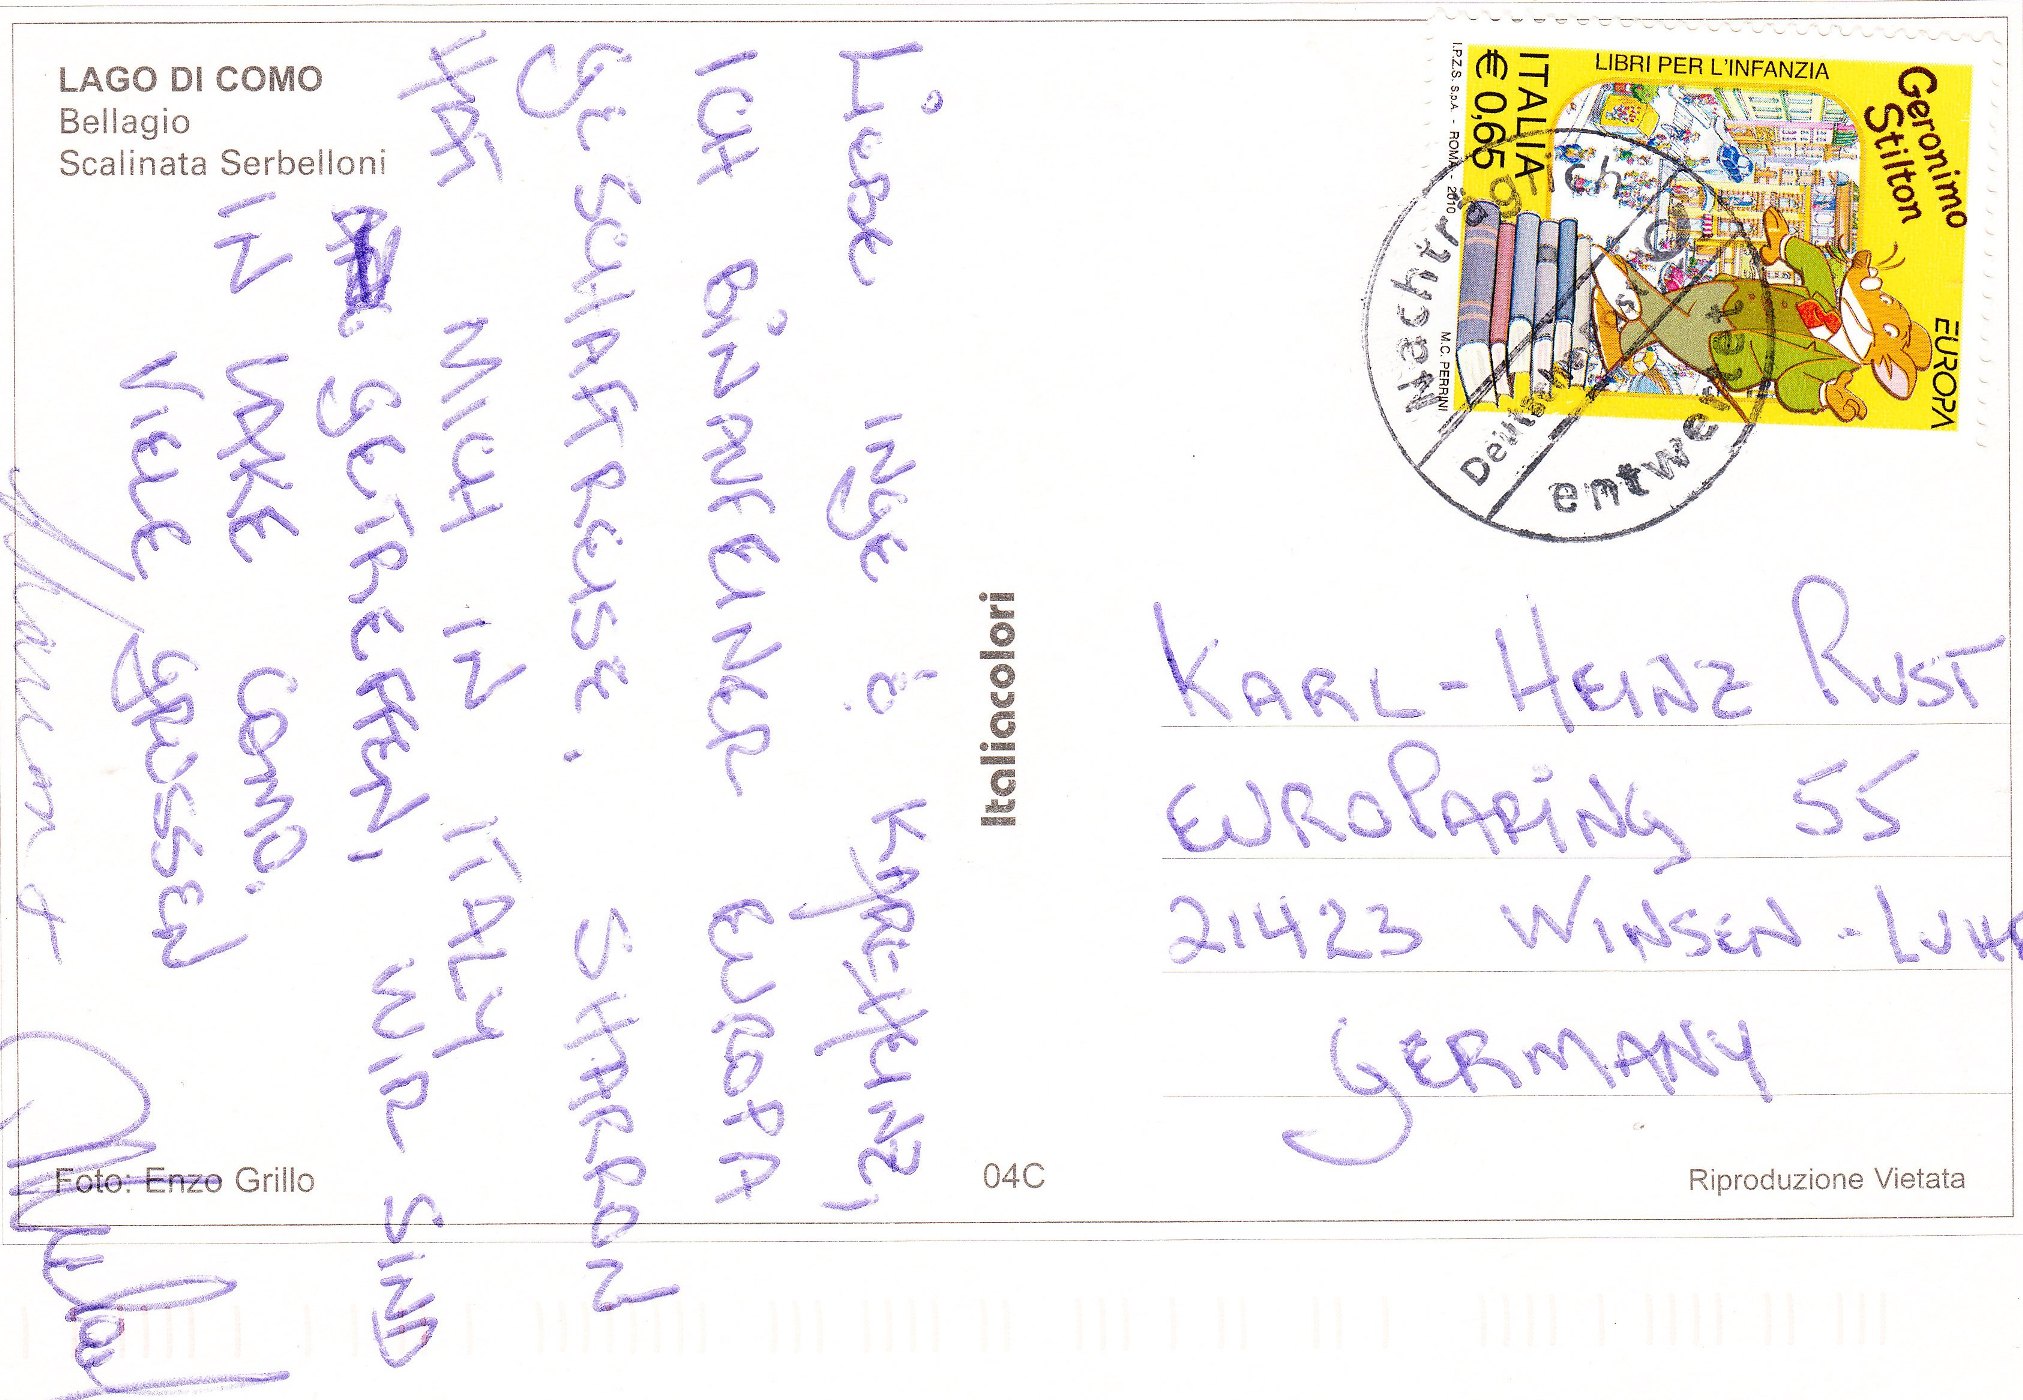 LAGO DI COMO
Bellagio
Scalinata Serbelloni
LIEBE INGE & KARL-HEINZ,
ICH BIN AUF EINER EUROPA
GESCHAFTREISE. SHARRON
HAT MICH IN ITALY
GETREFFEN, WIR SIND
IN LAKE COMO.
VIELE GRUSSEN
Sharron &
Foto: Enzo Grillo
Italiacolori
04C
LIBRI PER L'INFANZIA
Geronimo
Stilton
ITALIA
€ 0,65
EUROPA
I.P.Z.S. S.p.A. - ROMA - 2010
M.C. PERRINI
Nachträglich
Deutsche Post
entwertet
KARL-HEINZ RUST
EUROPARING 55
21423 WINSEN - LUHE
GERMANY
Riproduzione Vietata